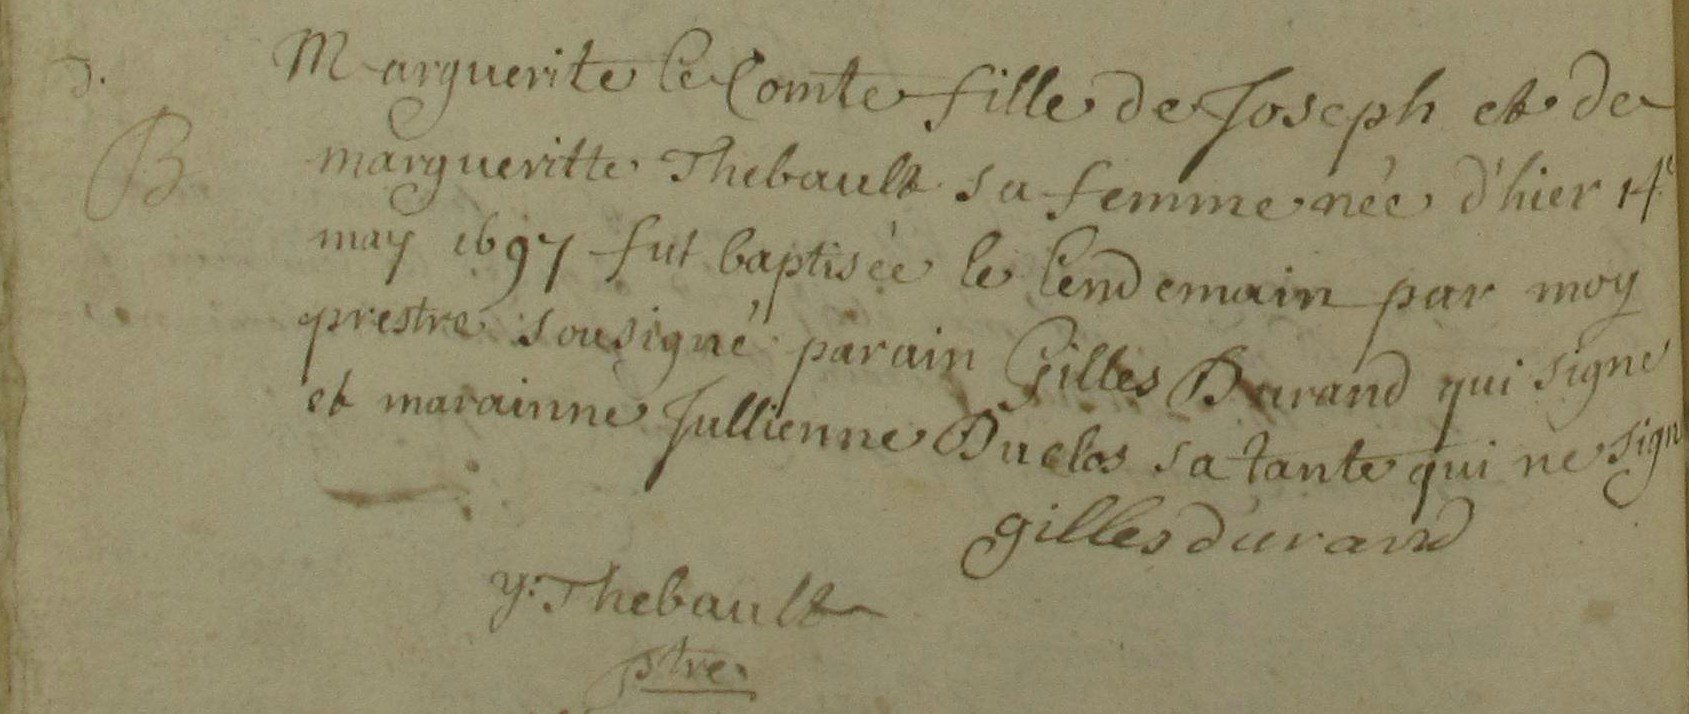 Marguerite le Comte fille de Joseph et de
B
margueritte Thebault sa femme née d'hier 14e
may 1697 fut baptisée le lendemain par moy
prestre sousigné parain Gilles Durand qui signe
et marainne Jullienne Duclos sa tante qui ne sign
gilles durand
y: Thebault
ptre.